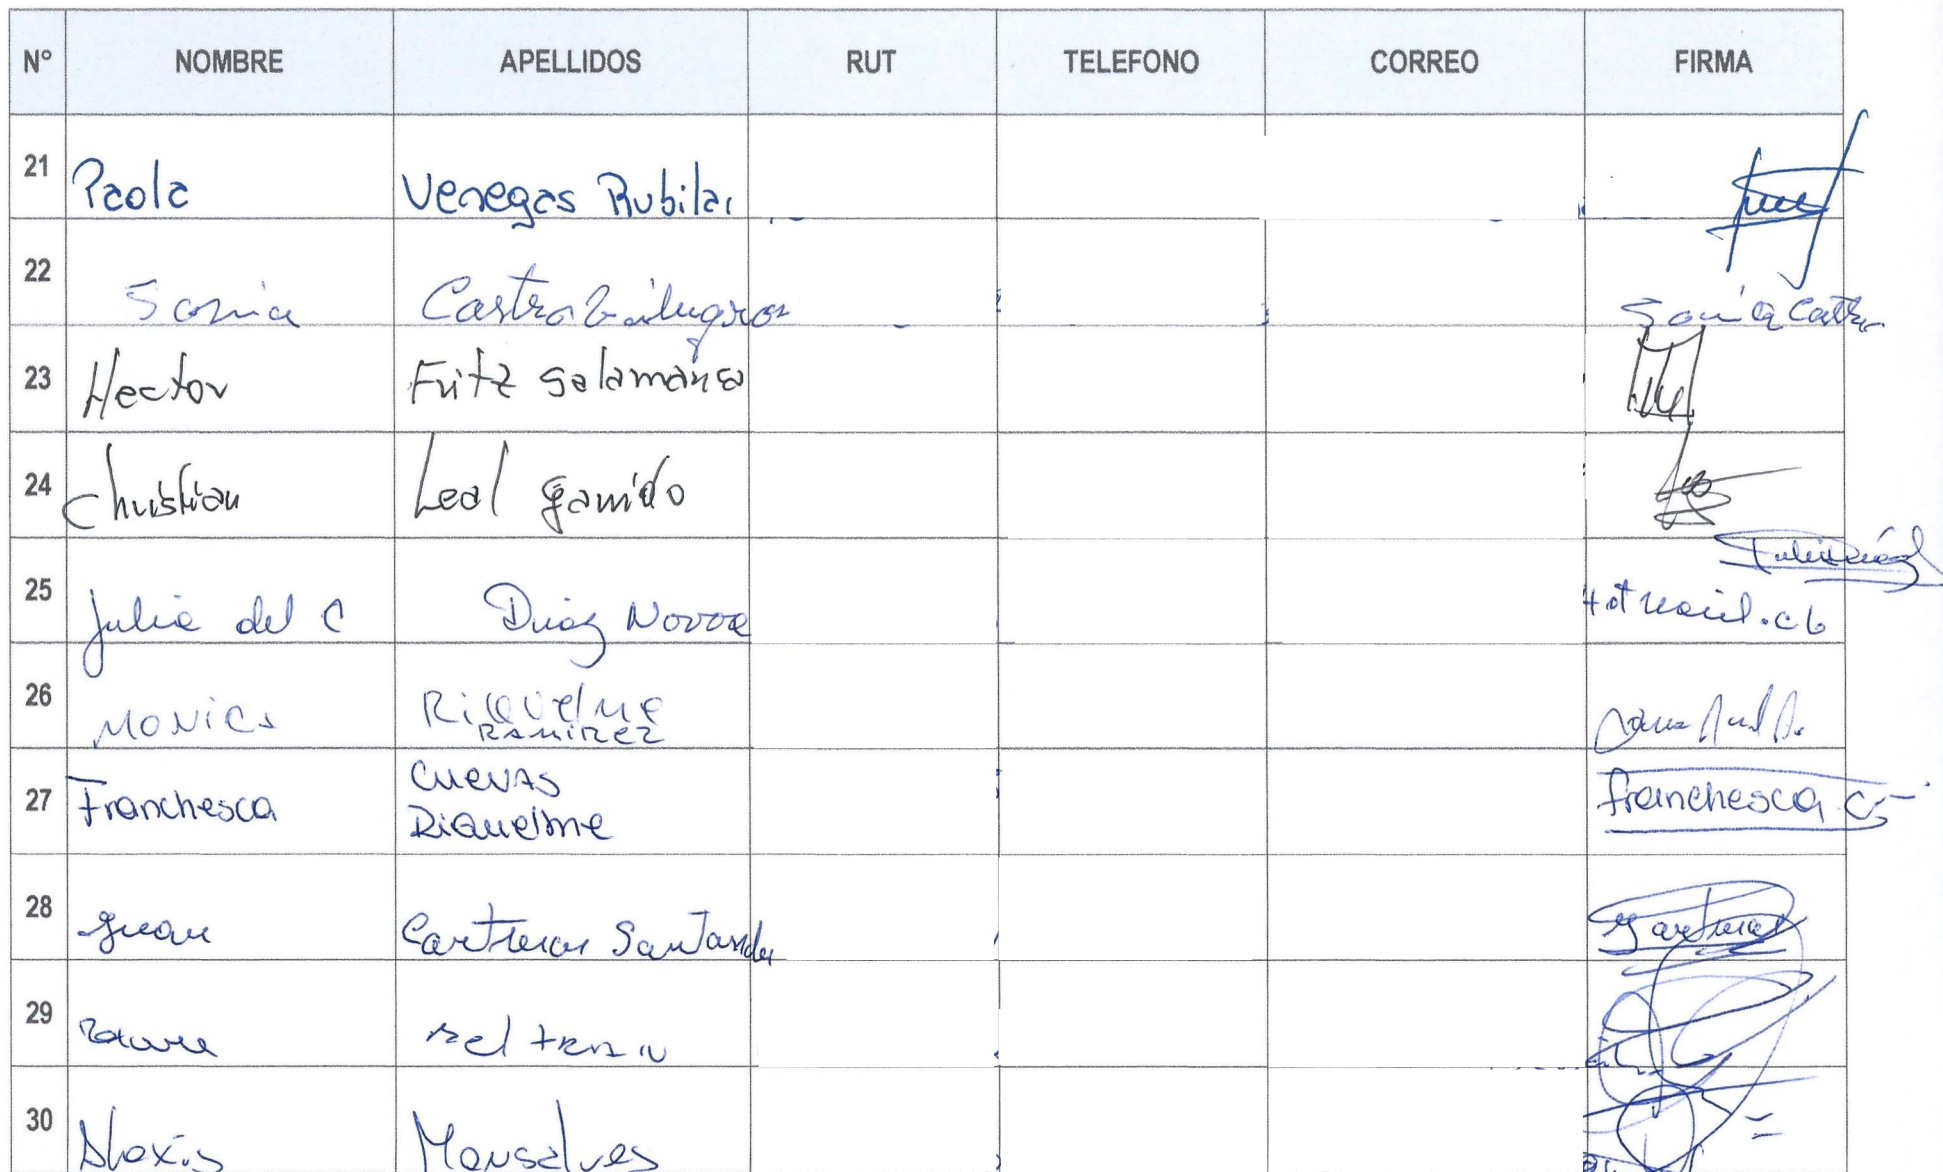 N° NOMBRE APELLIDOS RUT TELEFONO CORREO FIRMA
21 Paola Venegas Rubilar
22 Sonia Castro Sonia Castro
23 Hector Fritz Salamanca
24 Christian Leal Garrido
25 Julia del C Diaz Novoa Julia Diaz
Hotmail.cl
26 MONICA RIQUELME
RAMIREZ
27 Franchesca CUEVAS
RIQUELME Franchesca C
28 Juan Contreras Santander
29 Beltran
30 Alexis Monsalves